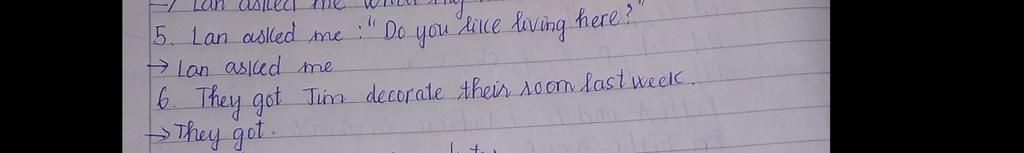 → Lan asked me what
5. Lan asked me : "Do you like living here?"
→ Lan asked me
6. They got Jim decorate their room last week.
→ They got.